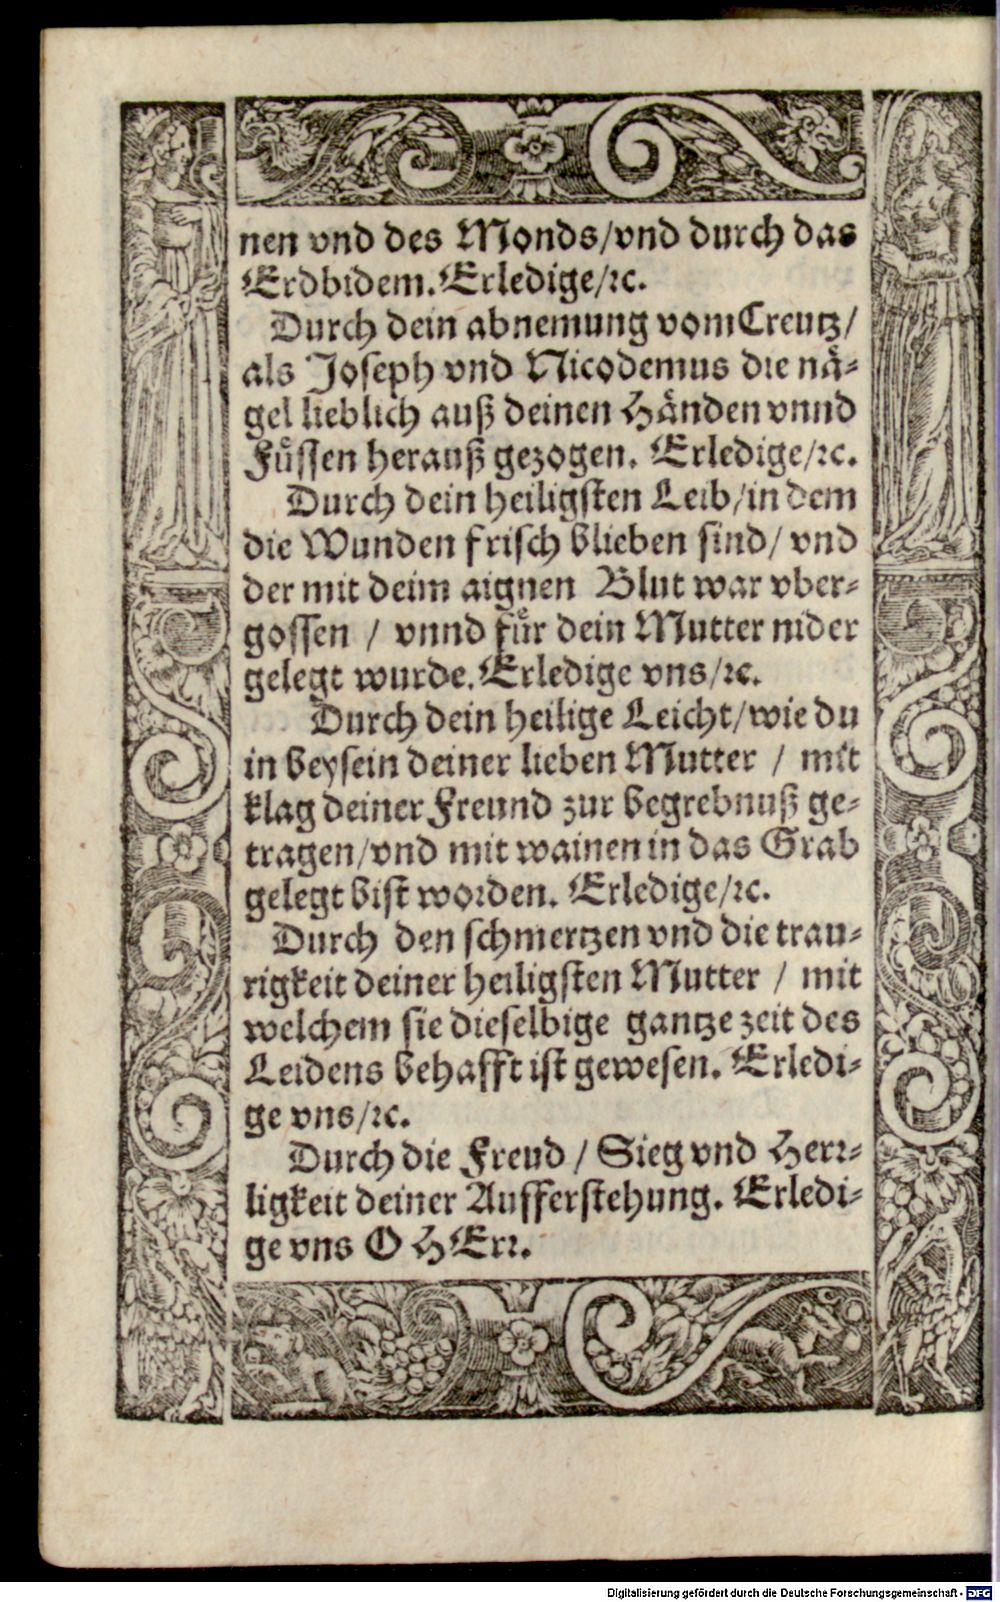 nen vnd des Monds/vnd durch das
Erdbidem. Erledige/ꝛc.
Durch dein abnemung vom Creutz/
als Joseph vnd Nicodemus die nä-
gel lieblich auß deinen Händen vnnd
Füssen herauß gezogen. Erledige/ꝛc.
Durch dein heiligsten Leib/in dem
die Wunden frisch blieben sind/ vnd
der mit deim aignen Blut war vber-
gossen / vnnd für dein Mutter nider
gelegt wurde. Erledige vns/ꝛc.
Durch dein heilige Leicht/wie du
in beysein deiner lieben Mutter / mit
klag deiner Freund zur begrebnuß ge-
tragen/vnd mit wainen in das Grab
gelegt bist worden. Erledige/ꝛc.
Durch den schmertzen vnd die trau-
rigkeit deiner heiligsten Mutter / mit
welchem sie dieselbige gantze zeit des
Leidens behafft ist gewesen. Erledi-
ge vns/ꝛc.
Durch die Freud / Sieg vnd Herr-
ligkeit deiner Aufferstehung. Erledi-
ge vns O HErr.
Digitalisierung gefördert durch die Deutsche Forschungsgemeinschaft - DFG